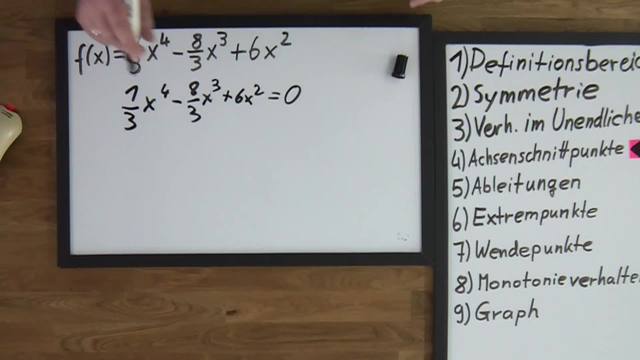 f(x)= x⁴ - 8/3 x³ + 6x²
1/3 x⁴ - 8/3 x³ + 6x² = 0
1) Definitionsbereic
2) Symmetrie
3) Verh. im Unendliche
4) Achsenschnittpunkte
5) Ableitungen
6) Extrempunkte
7) Wendepunkte
8) Monotonieverhalte
9) Graph